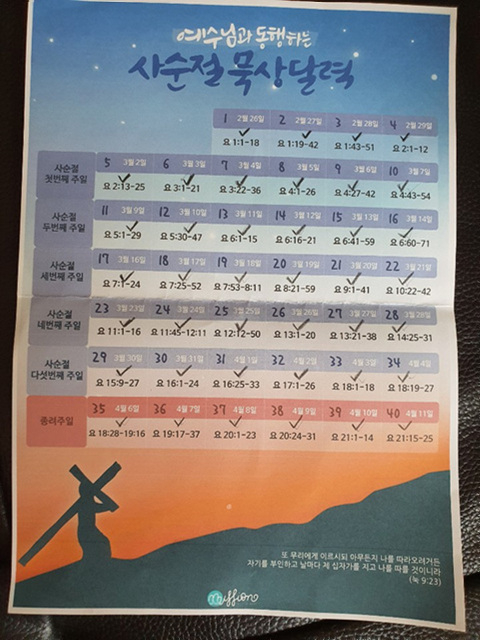 예수님과 동행하는
사순절 묵상달력
1 2월 26일 2 2월 27일 3 2월 28일 4 2월 29일
요 1:1-18 요 1:19-42 요 1:43-51 요 2:1-12
사순절 첫번째 주일
5 3월 2일 6 3월 3일 7 3월 4일 8 3월 5일 9 3월 6일 10 3월 7일
요 2:13-25 요 3:1-21 요 3:22-36 요 4:1-26 요 4:27-42 요 4:43-54
사순절 두번째 주일
11 3월 9일 12 3월 10일 13 3월 11일 14 3월 12일 15 3월 13일 16 3월 14일
요 5:1-29 요 5:30-47 요 6:1-15 요 6:16-21 요 6:41-59 요 6:60-71
사순절 세번째 주일
17 3월 16일 18 3월 17일 19 3월 18일 20 3월 19일 21 3월 20일 22 3월 21일
요 7:1-24 요 7:25-52 요 7:53-8:11 요 8:21-59 요 9:1-41 요 10:22-42
사순절 네번째 주일
23 3월 23일 24 3월 24일 25 3월 25일 26 3월 26일 27 3월 27일 28 3월 28일
요 11:1-16 요 11:45-12:11 요 12:12-50 요 13:1-20 요 13:21-38 요 14:25-31
사순절 다섯번째 주일
29 3월 30일 30 3월 31일 31 4월 1일 32 4월 2일 33 4월 3일 34 4월 4일
요 15:9-27 요 16:1-24 요 16:25-33 요 17:1-26 요 18:1-18 요 18:19-27
종려주일
35 4월 6일 36 4월 7일 37 4월 8일 38 4월 9일 39 4월 10일 40 4월 11일
요 18:28-19:16 요 19:17-37 요 20:1-23 요 20:24-31 요 21:1-14 요 21:15-25
또 무리에게 이르시되 아무든지 나를 따라오려거든
자기를 부인하고 날마다 제 십자가를 지고 나를 따를 것이니라
(눅 9:23)